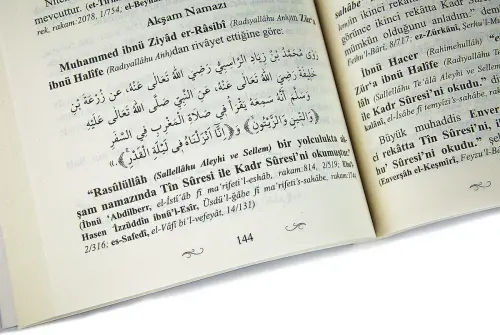 mevcuttur. (et-Tir
rek. rakam:2078, 1/754, el-Bey
Akşam Namazı
Muhammed ibnü Ziyâd er-Râsibî (Radıyallâhu Anh)'ın Zür'a
ibnü Halîfe (Radıyallâhu Anh)dan rivâyet ettiğine göre:
رَوَى مُحَمَّدُ بْنُ زِيَادٍ الرَّاسِبِيُّ رَضِيَ اللّٰهُ تَعَالَى عَنْهُ، عَنْ زُرْعَةَ بْنِ
خَلِيفَةَ رَضِيَ اللّٰهُ تَعَالَى عَنْهُ، عَنِ النَّبِيِّ صَلَّى اللّٰهُ تَعَالَى عَلَيْهِ
وَسَلَّمَ أَنَّهُ سَمِعَهُ يَقْرَأُ فِي صَلَاةِ الْمَغْرِبِ فِي السَّفَرِ
﴿وَالتِّينِ وَالزَّيْتُونِ﴾ وَ﴿إِنَّا أَنْزَلْنَاهُ فِي لَيْلَةِ الْقَدْرِ﴾.»
"Rasûlüllâh (Sallellâhu Aleyhi ve Sellem) bir yolculukta ak-
şam namazında Tîn Sûresi ile Kadr Sûresi'ni okumuştur."
(İbnü 'Abdilberr, el-İstî'âb fî ma'rifeti'l-eshâb, rakam:814, 2/519; Ebu'l-
Hasen İzzüddîn ibnü'l-Esîr, Üsdü'l-ğâbe fî ma'rifeti's-sahâbe, rakam:1744,
2/316; es-Safedî, el-Vâfî bi'l-vefeyât, 14/131)
144
sahâbe",
in ikinci rekâtta
görünce ikinci rekâtta Kadr
mümkün olduğunu anladım." de
Fethu'l-Bârî, 8/717; ez-Zürkânî, Şerhu
İbnü Hacer (Rahimehullâh) "e
Zür'a ibnü Halîfe (Radıyallâhu
(Sallellâhu Te'âlâ Aleyhi ve Sellem)
ile Kadr Sûresi'ni okudu."
kalânî, el-İsâbe fî temyîzi's-sahâbe, rakam
Büyük muhaddis Enver
ci rekâtta Tîn Sûresi'ni, i
hu' Sûresi'ni okudu."
(Enverşâh el-Keşmîrî, Feyzu'l-B